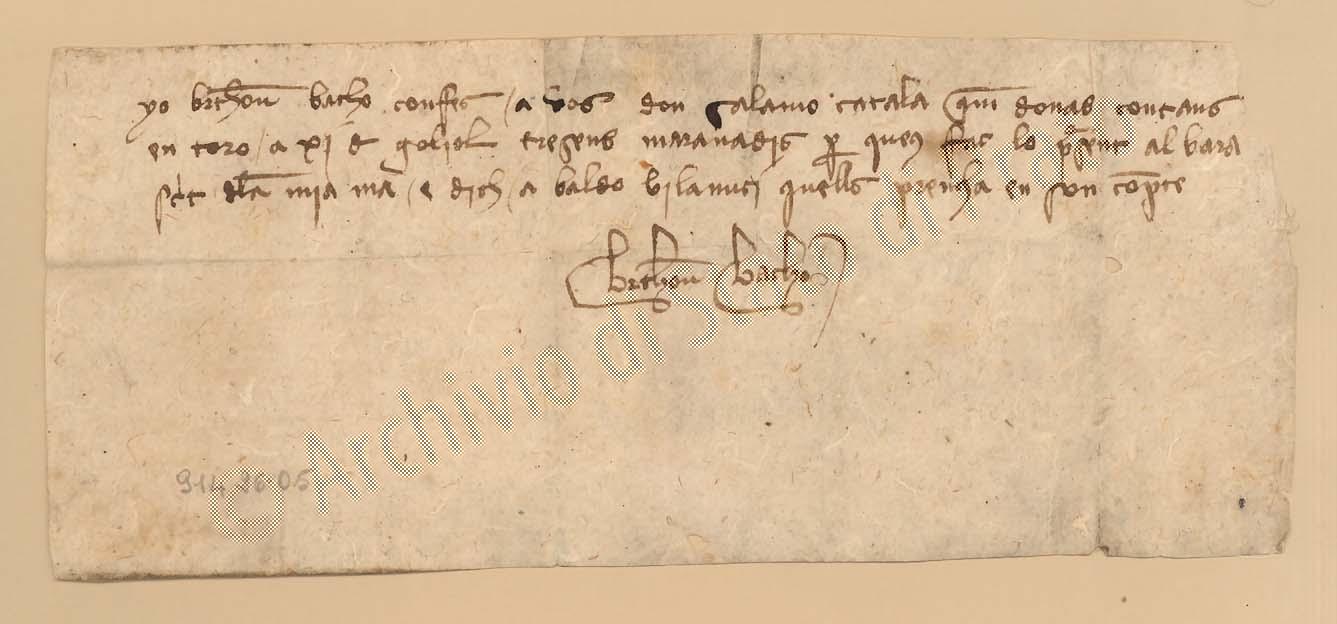 yo brthou bacho confes / a vos don salamo catala qm donas contans
en toro / a xj d goliol tresens maravadis per queus fac lo prsent albara
scrt dla mia ma / e dich / a baldo vilanuci quells prenha en son compte
brthou bacho
914 26 05
© Archivio di Stato di Prato